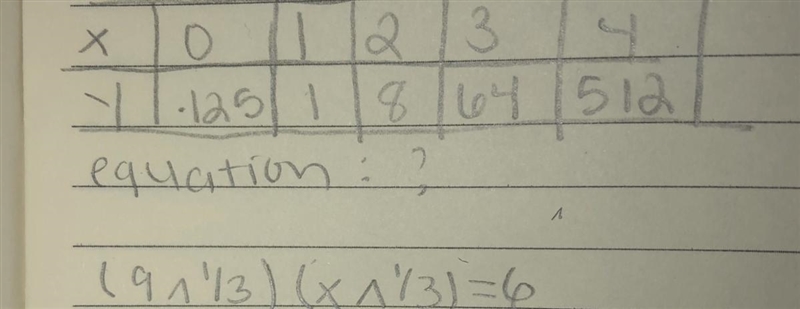 x 0 1 2 3 4
y .125 1 8 64 512
equation : ?
(9^1/3)(x^1/3)=6